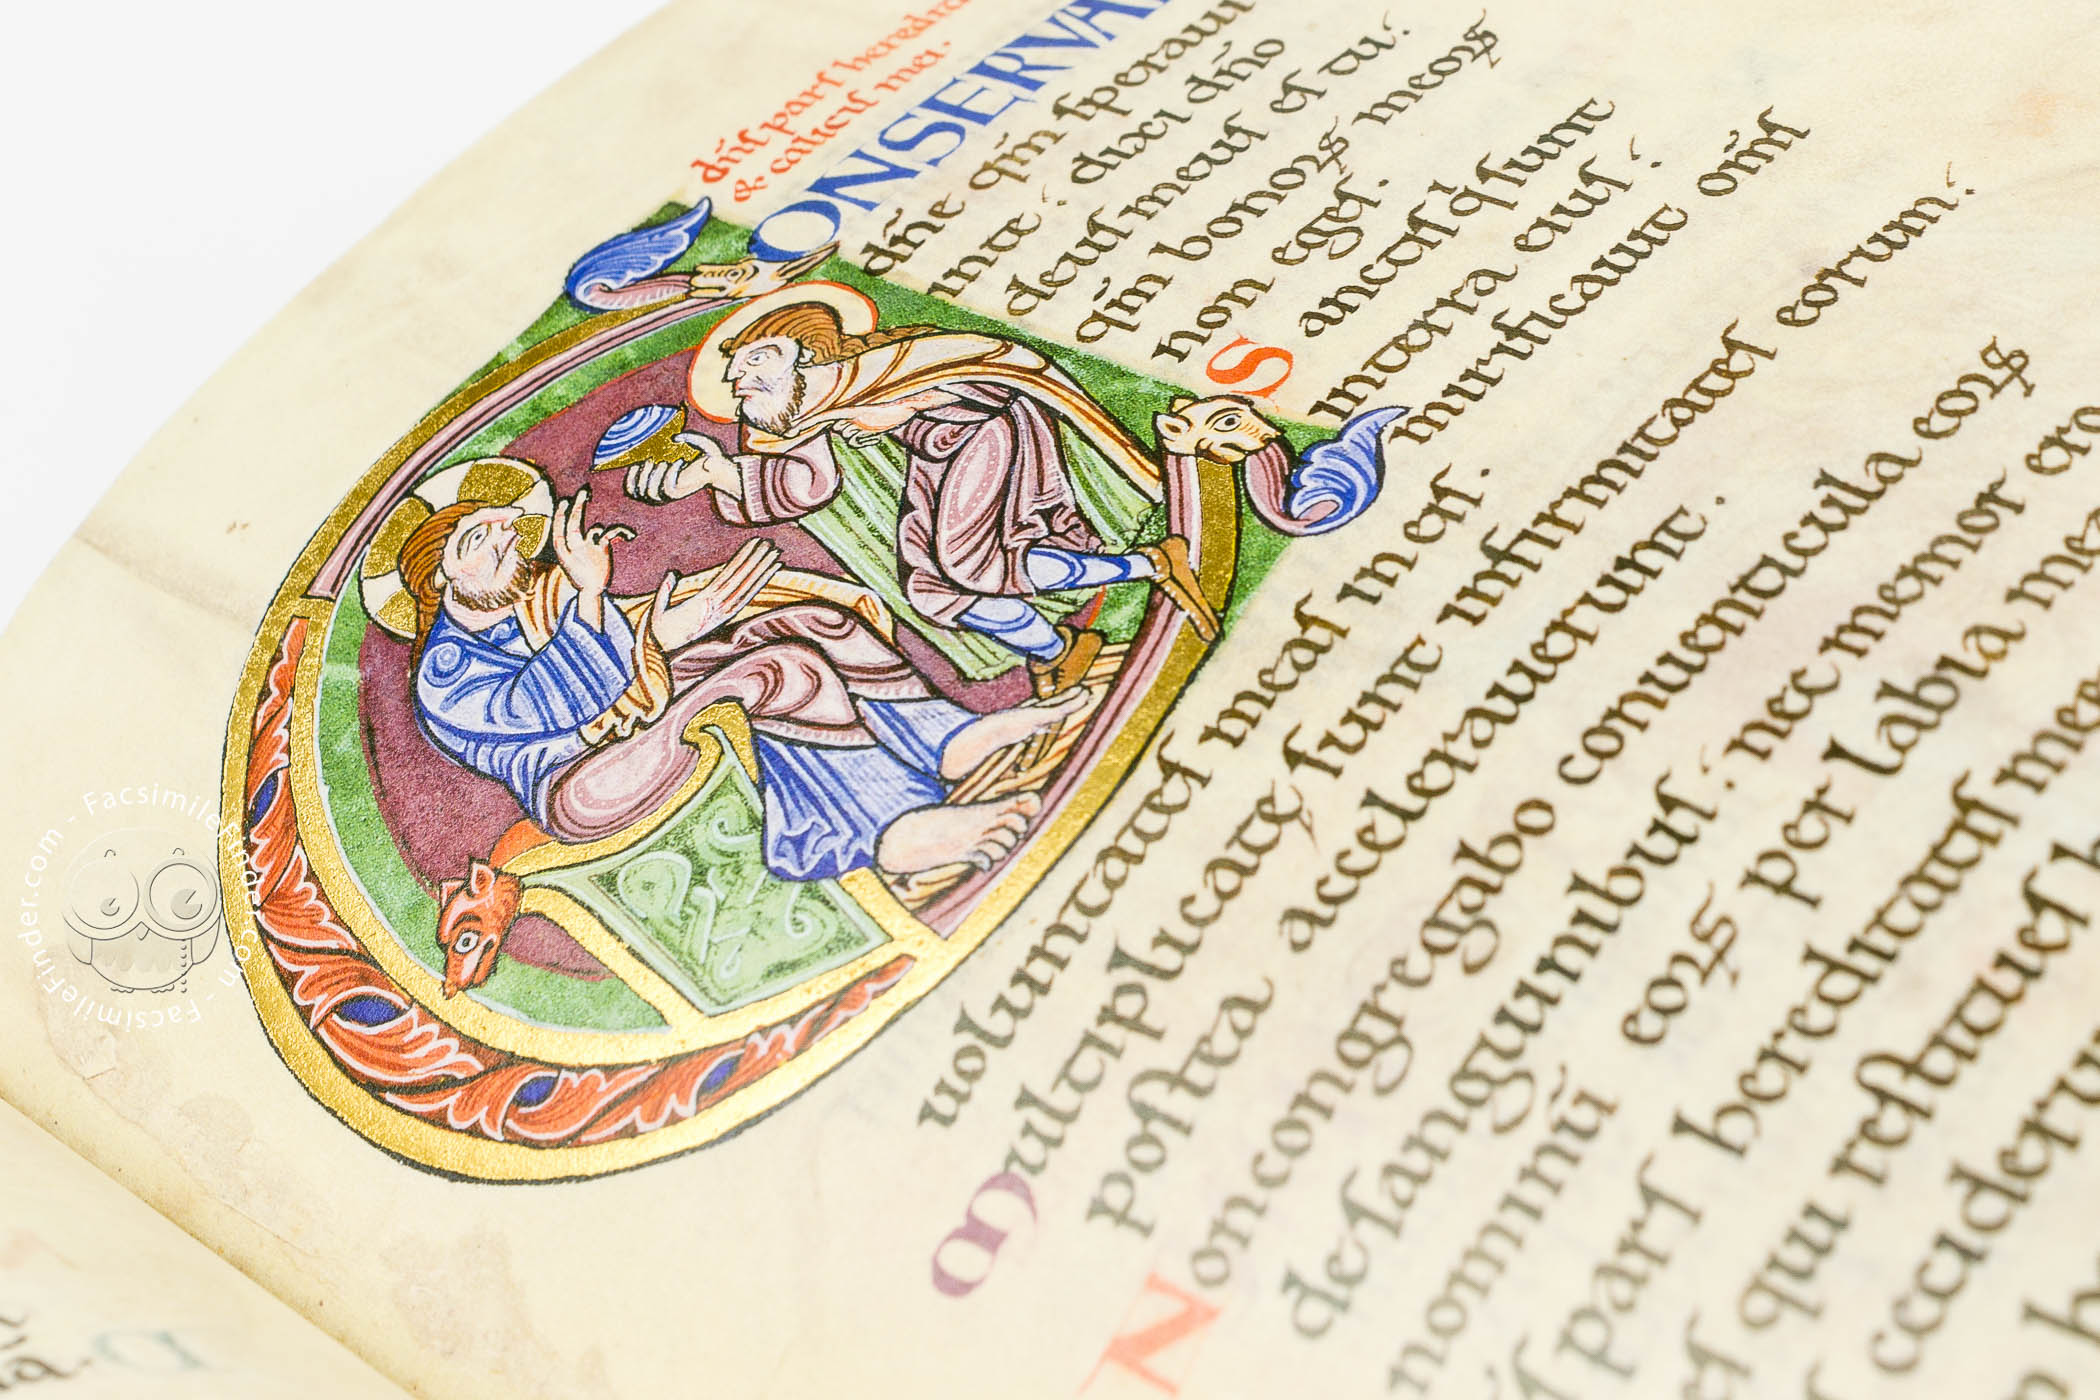 dn̄s pars heredita
& calicis mei.
CONSERVA
dn̄e qm̄ speraui
inte; dixi dn̄o
deus meus es tu;
qm̄ bonoꝝ meoꝝ
non eges.
Sanctis q̇ sunt
interra eius;
mirificauit om̄s
uoluntates meas in eis.
Multiplicate sunt infirmitates eorum;
postea accelerauerunt.
Non congregabo conuenticula eoꝝ
desanguinibus; nec memor ero
nominū eoꝝ per labia mea
pars hereditatis mee
es qui restitues h
ceciderun
FacsimileFinder.com - FacsimileFinder.com -